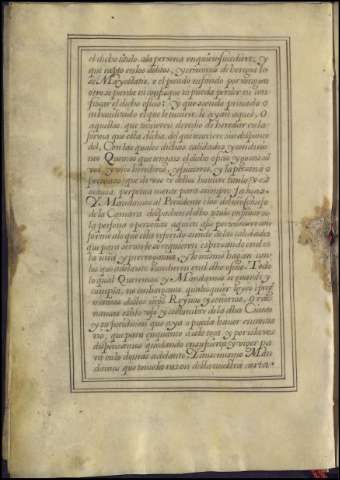 el dicho titulo a la persona en quien sucediere, y
que excepto en los delitos, y crimenes de heregia lese
Magestatis, o el pecado nefando por ningun
otro se pierda ni confisque ni pueda perder ni con-
fiscar el dicho oficio: Y que siendo privado o
inhabilitado el que le tuviere, le ayan aquel, o
aquellos que tuvieren derecho de heredar en la
forma que esta dicha del que muriere sin disponer
del, Con las quales dichas calidades y condicio-
nes Quiero que tengais el dicho oficio y gozeis
vos y vros herederos, y sucesores, y la persona o
personas que de vos o de ellos huviere titulo, y causa
perpetua mente para siempre Jamas.
Y Mandamos al Presidente y los del consejo
de la Camara despachen el dicho titulo en favor de
la persona o personas a quien asi perteneciere con-
forme a lo que esta referido siendo de las calidades
que para servirle se requieren expresando en el
esta mrd y prerrogativa, y lo mismo hagan con
los que adelante sucedieren en el dho oficio. Todo
lo qual Queremos y Mandamos se guarde y
cumpla, no embargante qualesquier leyes y prag-
maticas destos nros Reynos y senorios, ordе-
nanças estilo uso y costumbre de la dha Ciudad
y su jurisdicion que aya o pueda haver en contra-
rio, que para en quanto a esto toca y por esta vez
dispensamos quedando en su fuerza y vigor pa-
ra en lo demas adelante. Y asi mismo Man-
damos que tome la razon desta nuestra carta